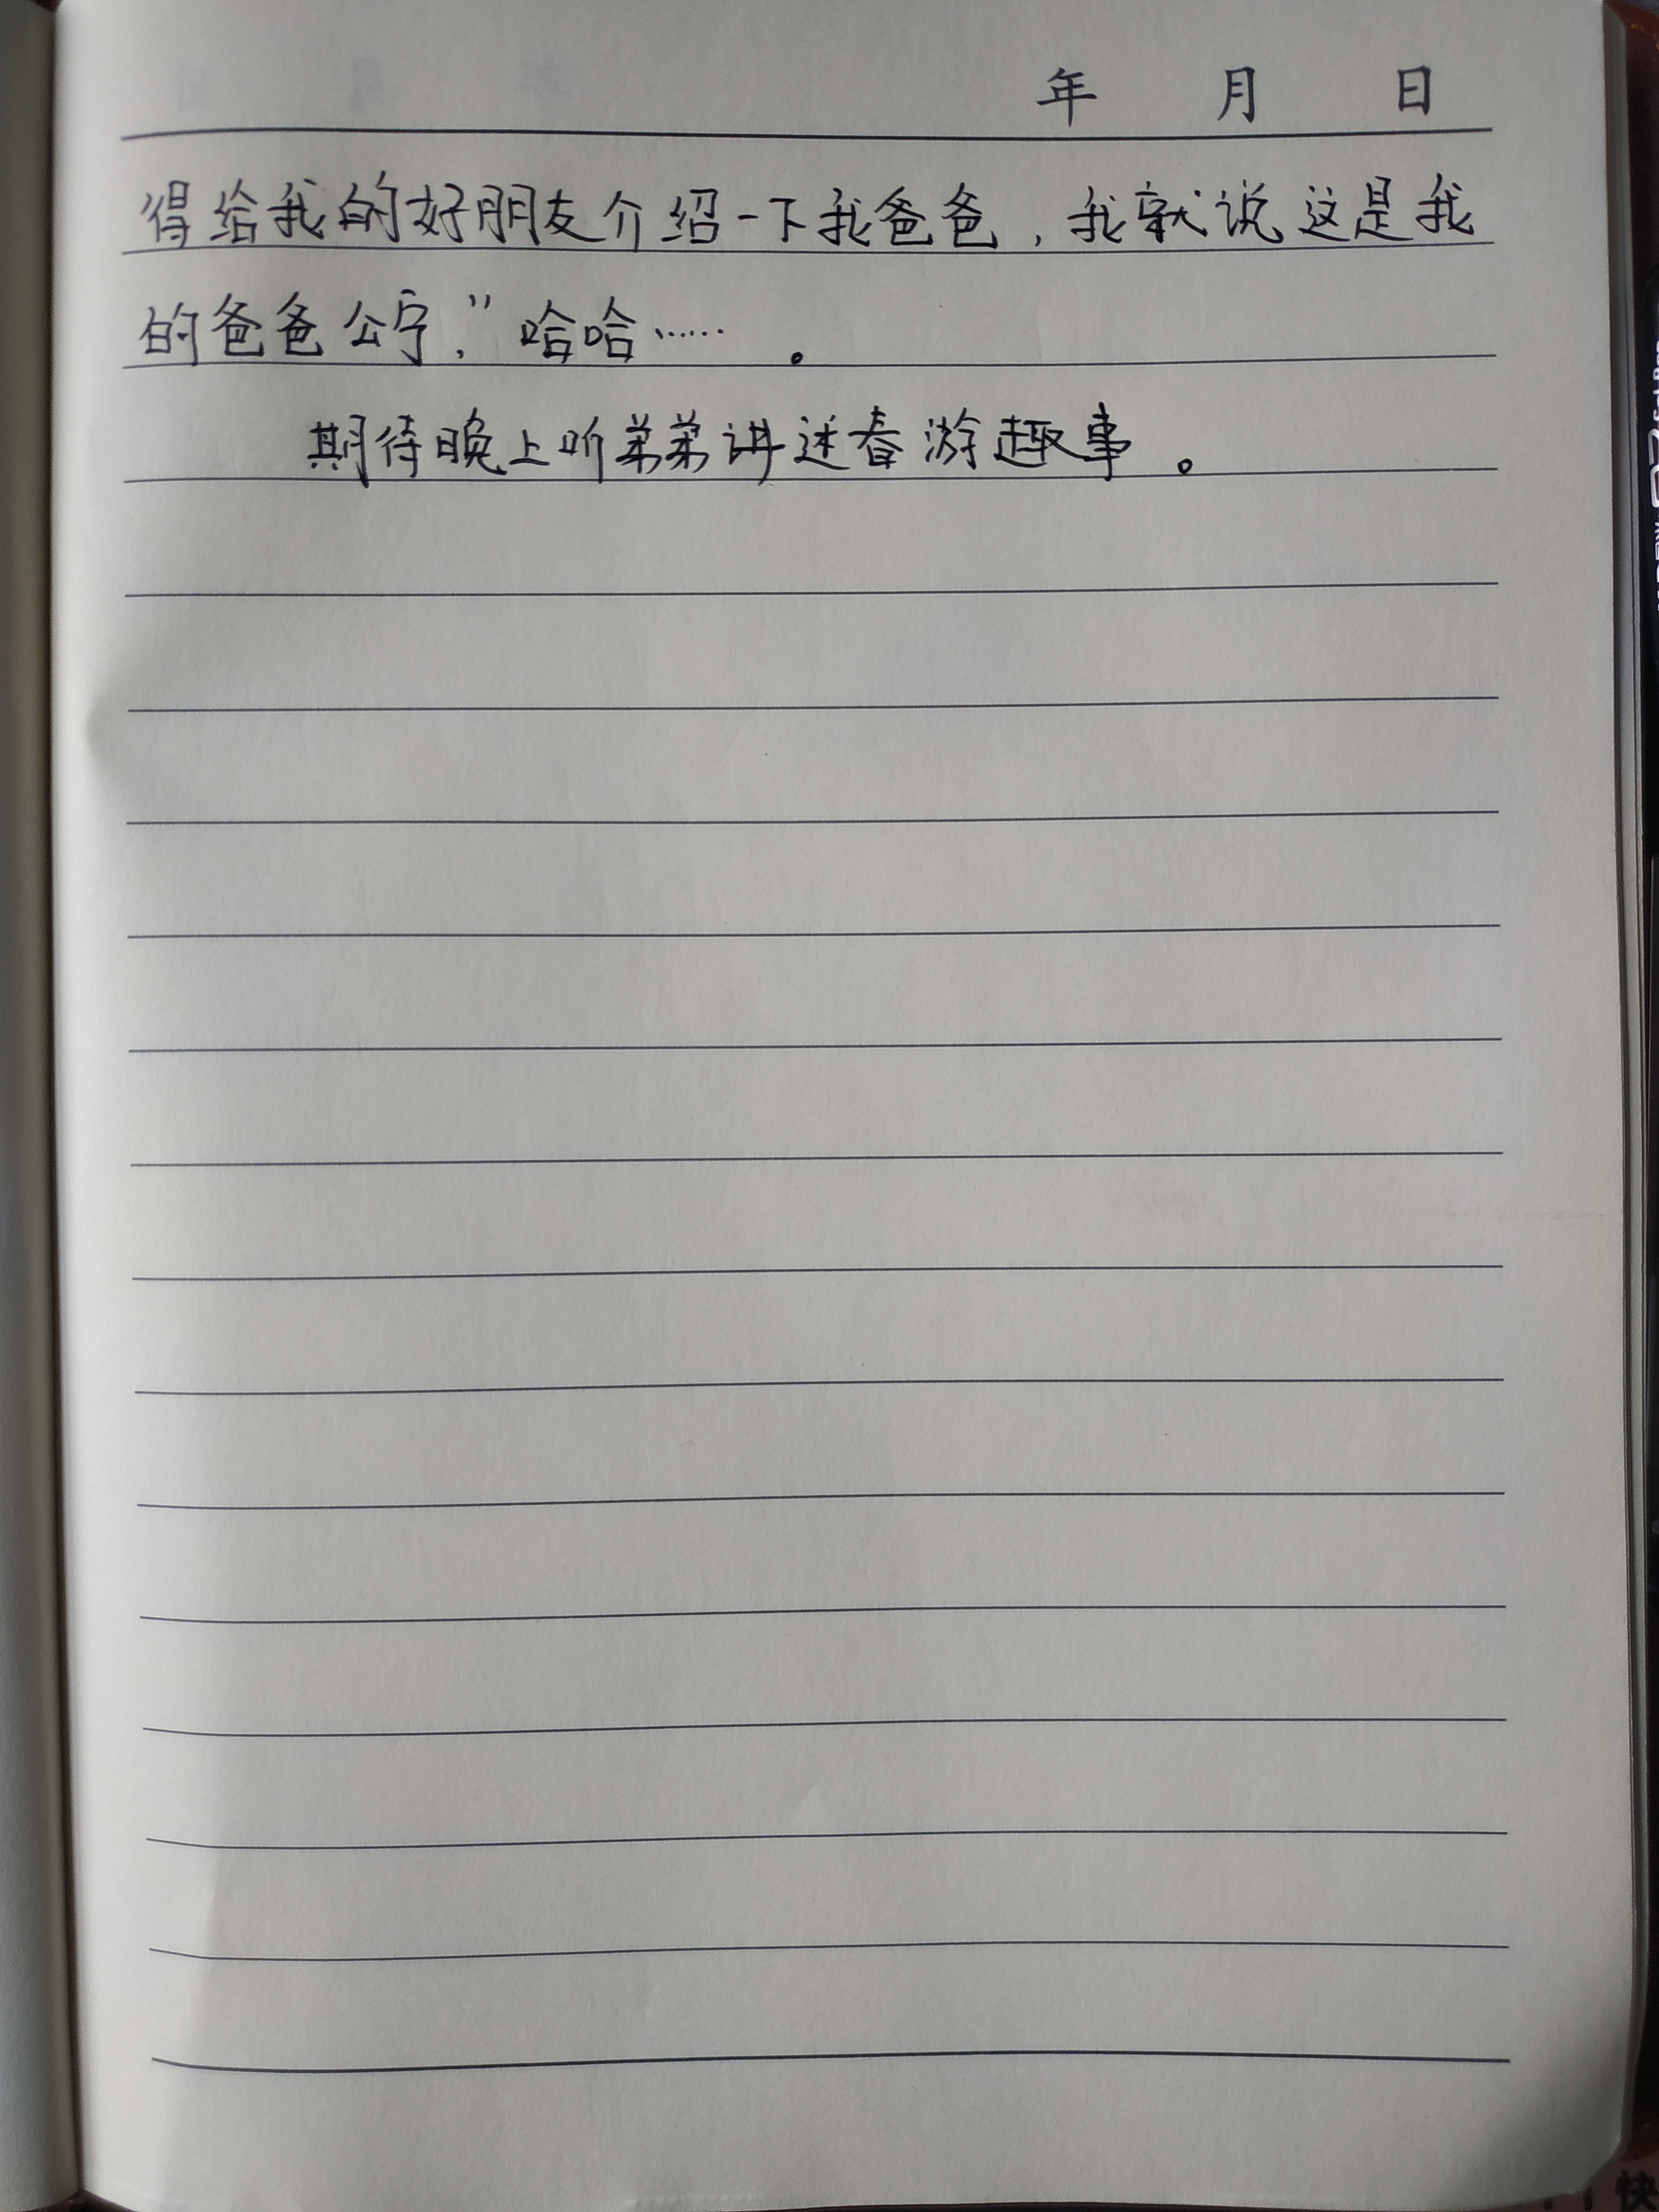 年 月 日
得给我的好朋友介绍一下我爸爸，我就说这是我
的爸爸公宁，”哈哈……。
期待晚上听弟弟讲述春游趣事。
快